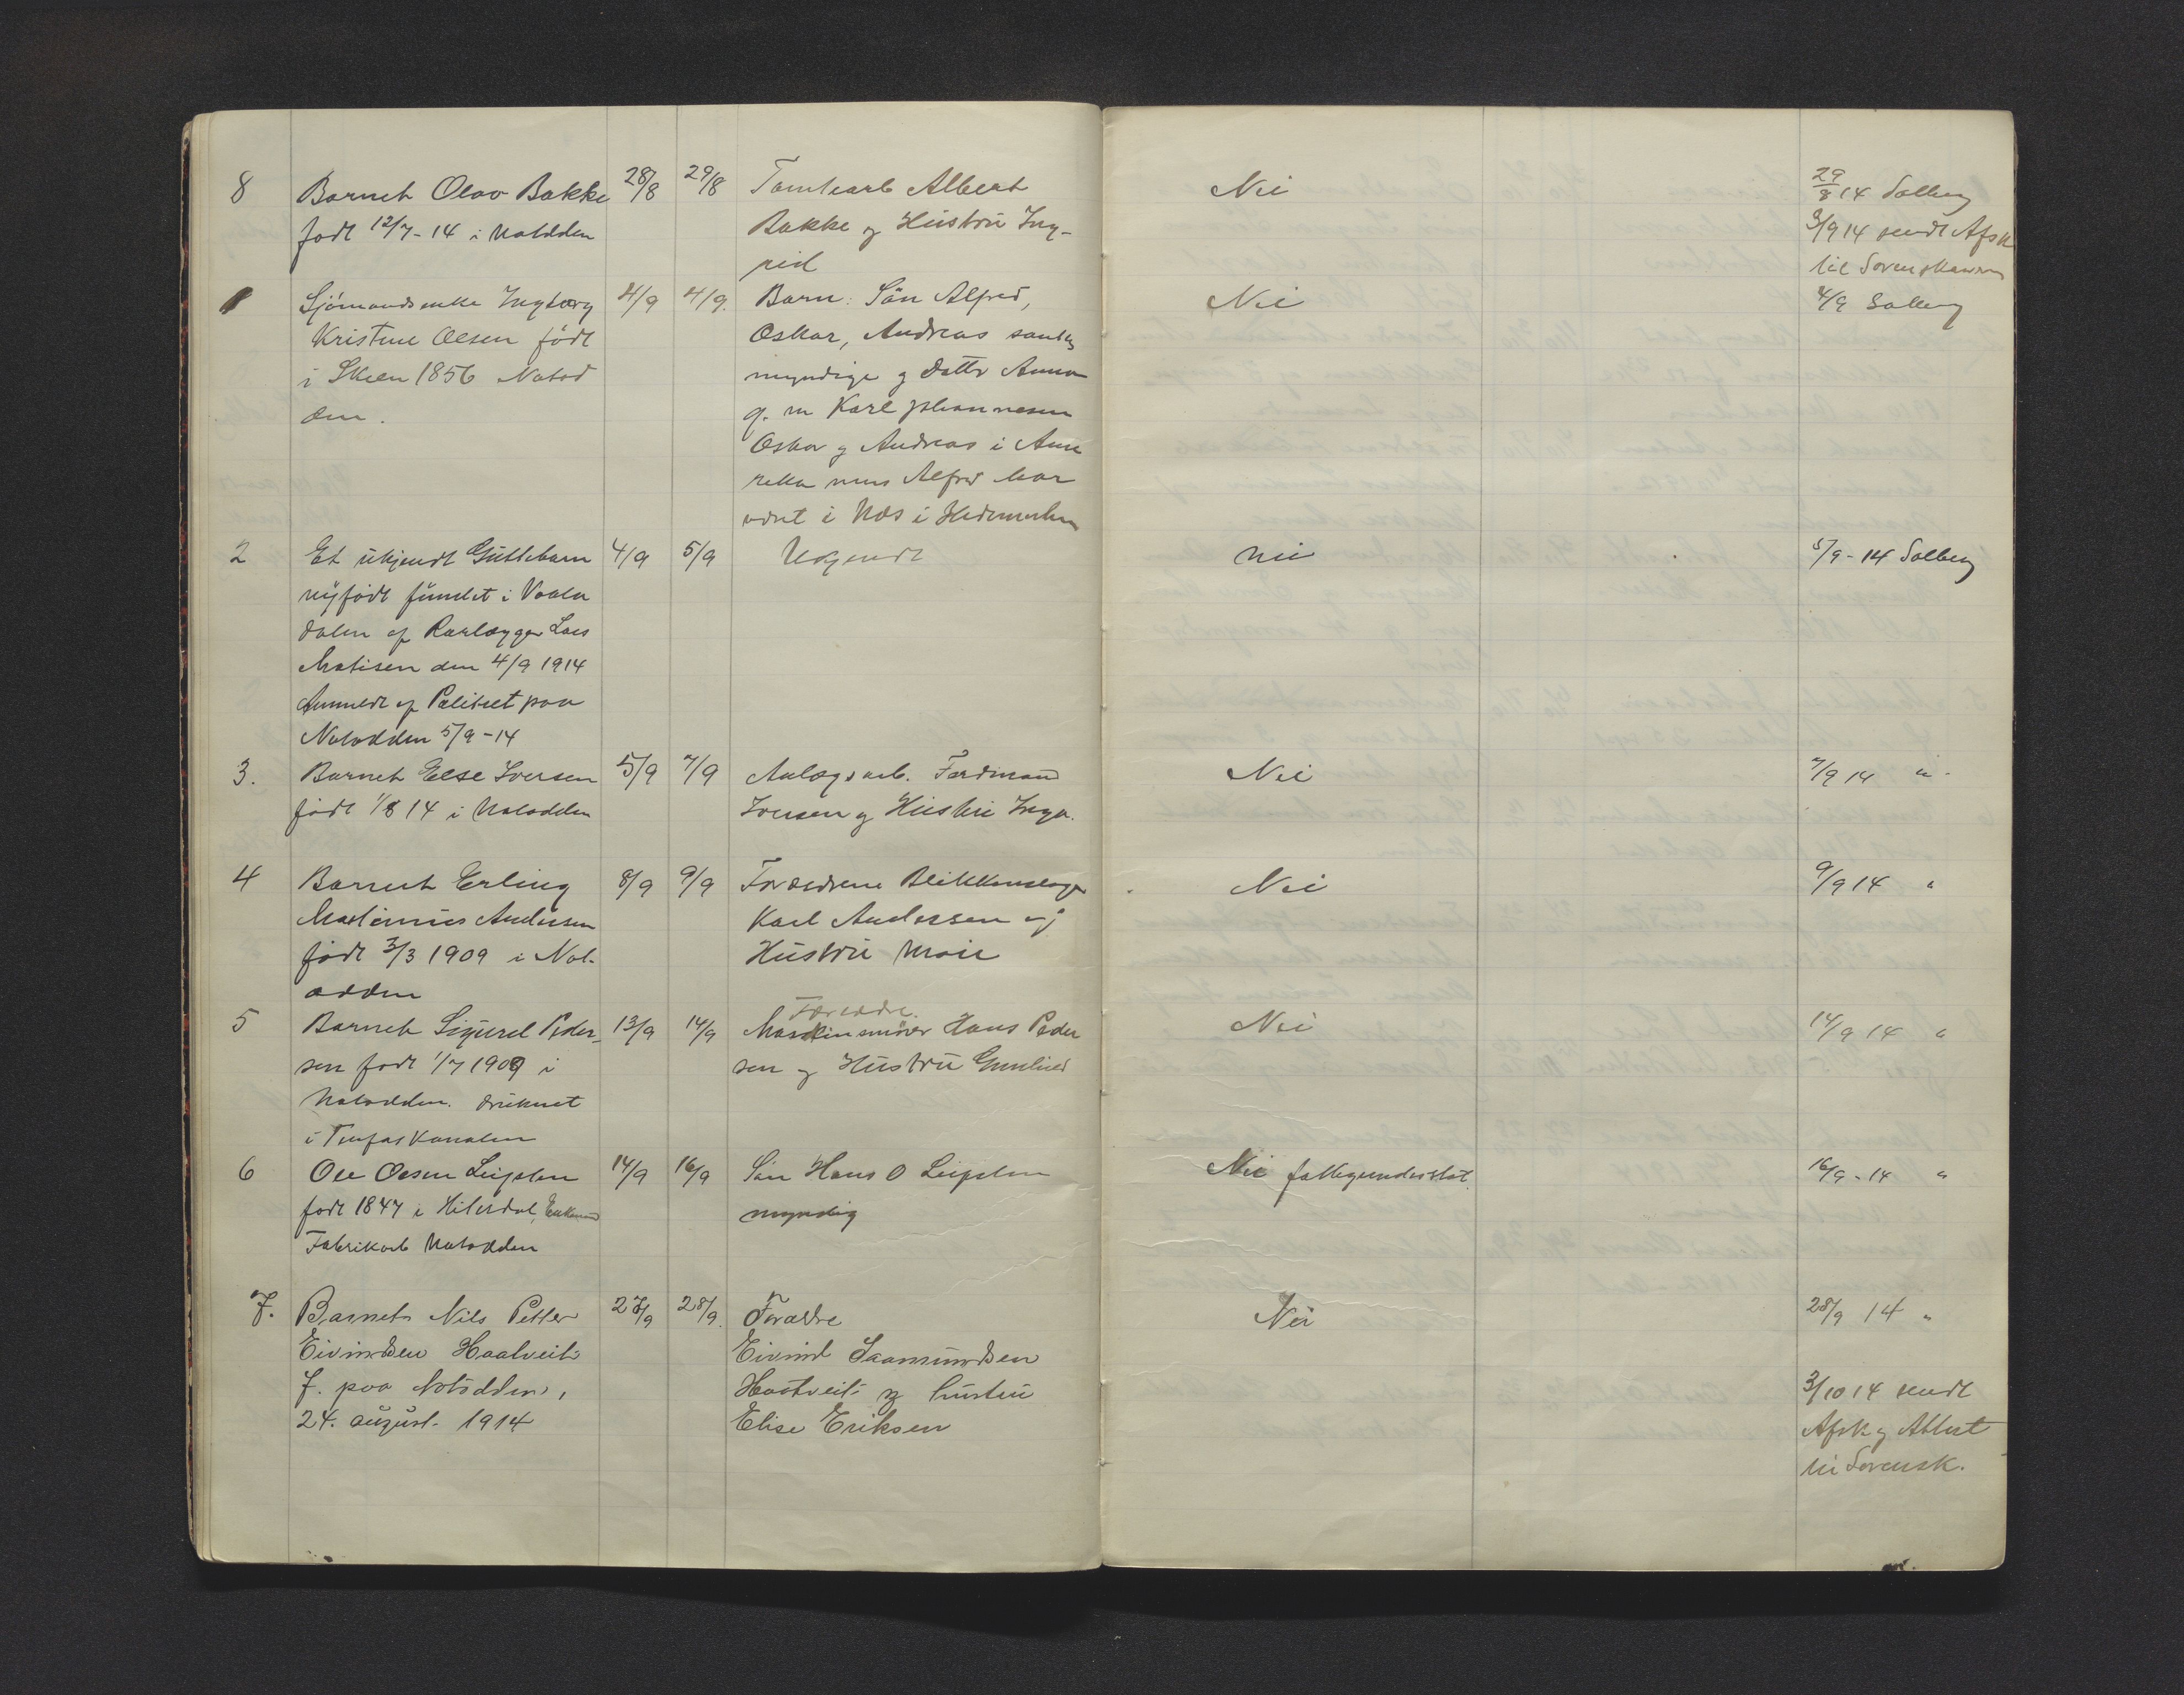 8 Barnet Olav Bakke 28/8 29/8 Tomtearb Albert Nei 29/8 14 Solberg
født 12/7-14 i Notodden Bakke og Hustru Ing- 3/9 14 sendt Afsk
rid til Sorenskriveren
1 Sjømandsenke Ingborg 4/9 4/9. Barn: Sön Alfred, Nei 4/9 Solberg
Kristine Olsen født Oskar, Andreas samtlig
i Skien 1856 Notod myndige og Datter Anna
den. g. m Karl Johannesen
Oskar og Andreas i Ame
rika mens Alfred har
været i Næs i Hedemarken
2 Et ukjendt Guttebarn 4/9 5/9 Ukjendt nei 5/9-14 Solberg
nyfødt fundet i Vaala
dalen af Rørlægger Lars
Matisen den 4/9 1914
Anmeldt af Politiet paa
Notodden 5/9-14
3. Barnet Else Iversen 5/9 7/9 Anlægsarb. Ferdinand Nei 7/9 14 "
født 1/8 14 i Notodden Iversen og Hustru Inga.
4 Barnet Erling 8/9 9/9 Forældrene Blikkenslager Nei 9/9 14 "
Martinius Andersen Karl Andersen og
født 3/3 1909 i Not- Hustru
odden
5 Barnet Sigurd Peder- 13/9 14/9 Forældre. Maskinmurer Hans Peder Nei 14/9 14 "
sen født 1/7 1909 i sen og Hustru Gunhild
Notodden. druknet
i Tinfoskanalen
6 Ole Olsen 14/9 16/9 Sön Hans O Nei fattigunderstöt. 16/9-14 "
født 1847 i Hiterdal, Enkemand myndig
Fabrikarb Notodden
7. Barnet Nils Petter 27/9 28/9. Forældre Nei 28/9 14 "
Eivindsen Haatveit Eivind Saamundsen
f. paa Notodden, Haatveit og hustru 3/10 14 sendt
24. august. 1914 Elise Eriksen Afsk og Attest
til Sorensk.